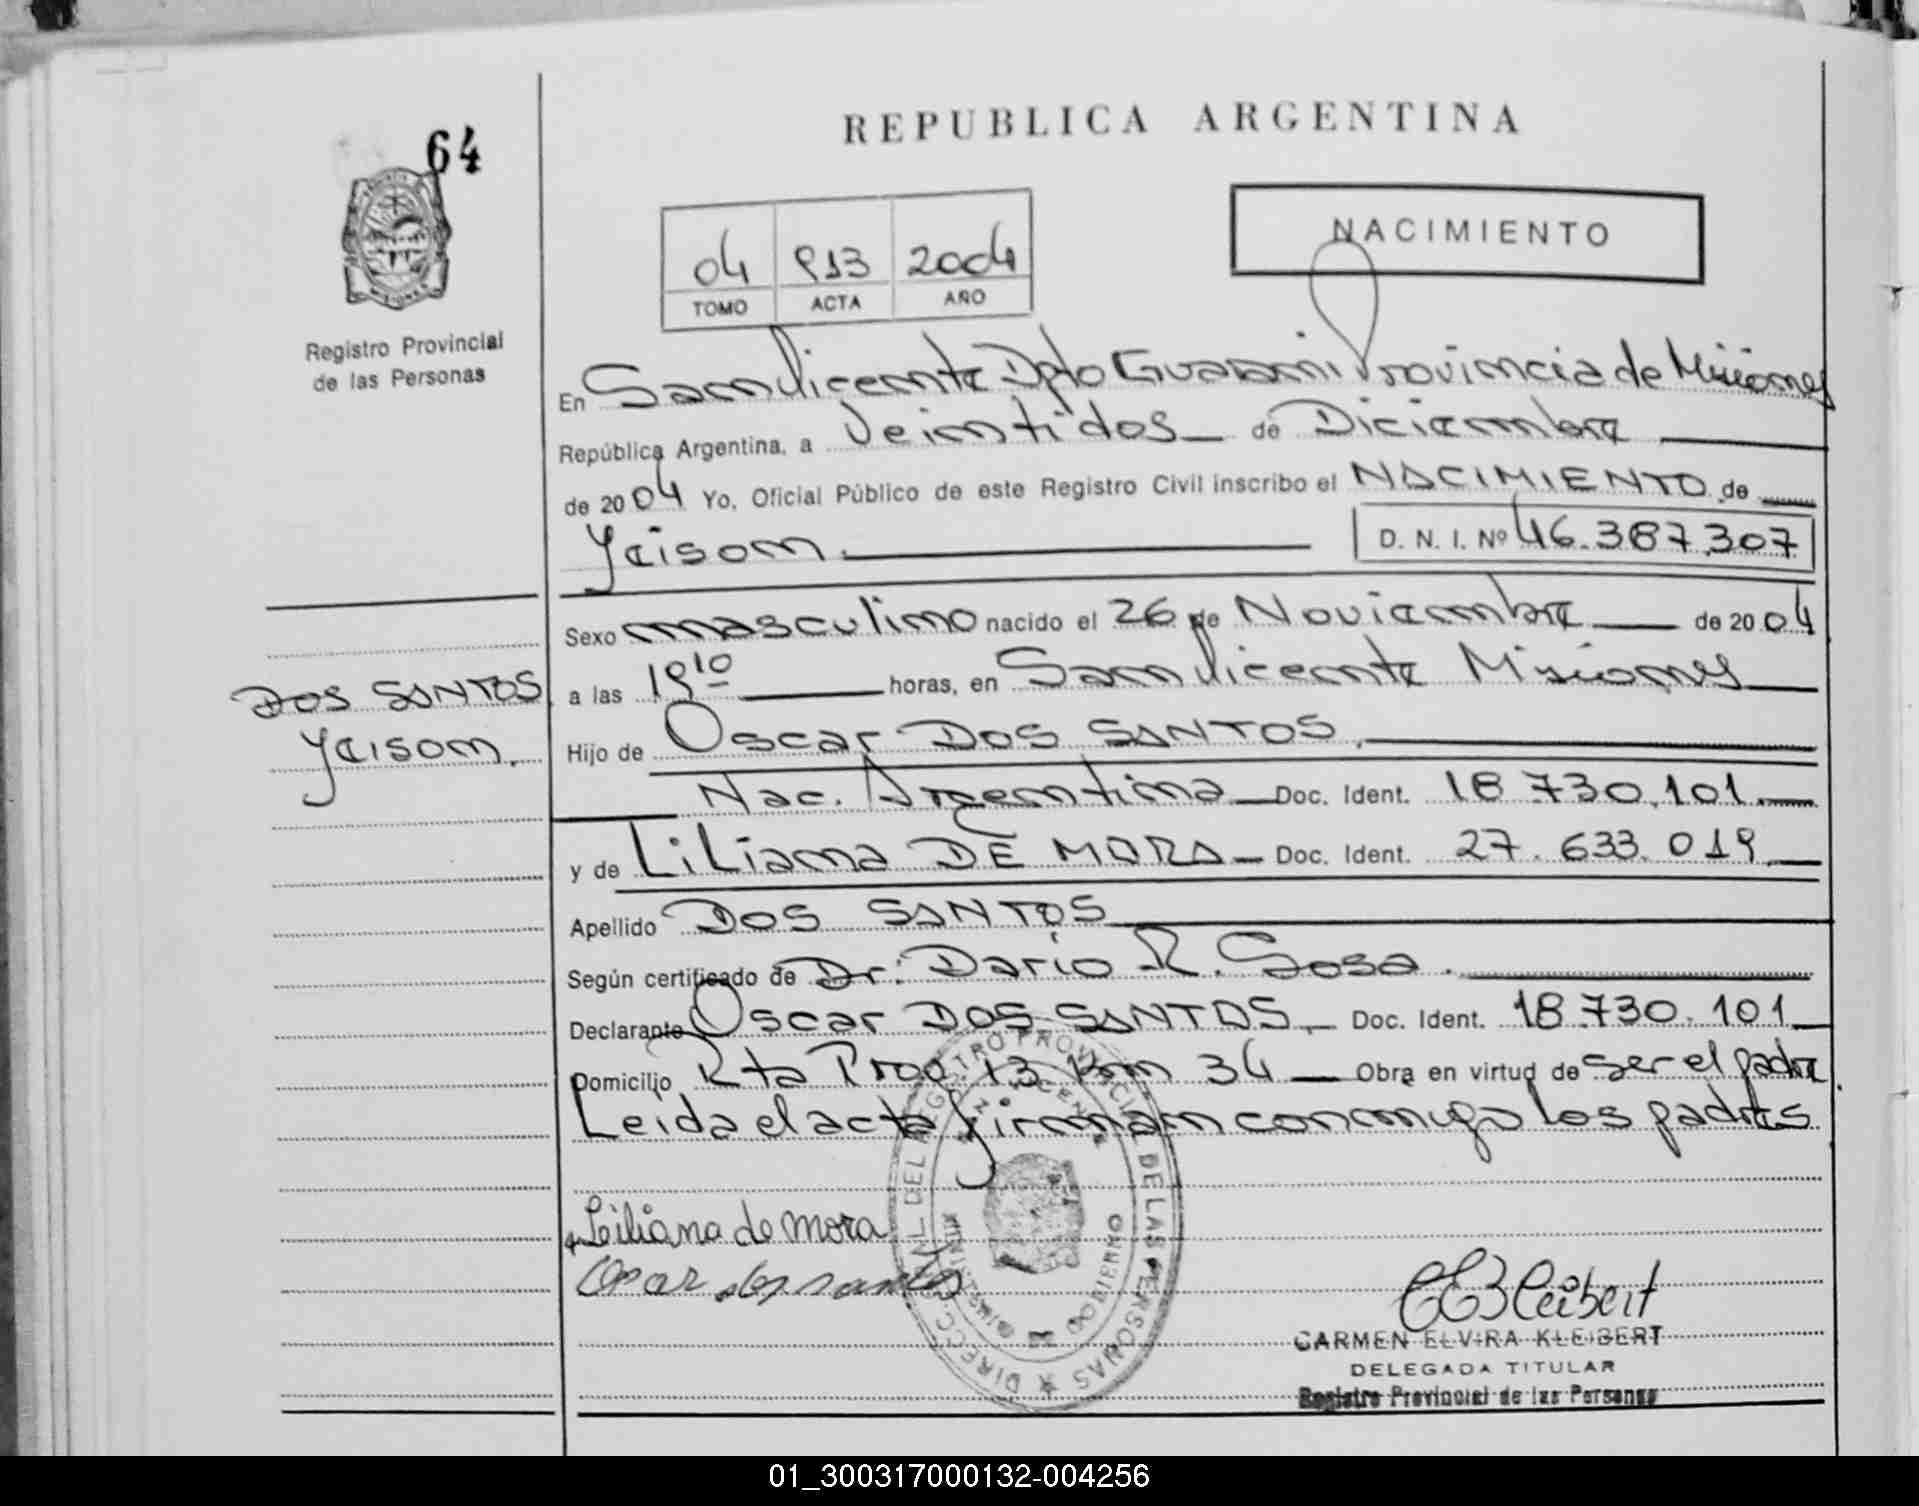 64
REPUBLICA ARGENTINA
NACIMIENTO
04 913 2004
TOMO ACTA AÑO
Registro Provincial
de las Personas
En San Vicente Dpto Guarani Provincia de Misiones
República Argentina, a Veintidos de Diciembre
de 2004 Yo, Oficial Público de este Registro Civil inscribo el NACIMIENTO de
Yeison D. N. I. Nº 46.387.307
Sexo masculino nacido el 26 de Noviembre de 2004
DOS SANTOS
Yeison.
a las 19 10 horas, en San Vicente Misiones
Hijo de Oscar DOS SANTOS.
Nac. Argentina Doc. Ident. 18.730.101.
y de Liliana DE MORA Doc. Ident. 27.633.019.
Apellido DOS SANTOS
Según certificado de Dr. Dario R. Sosa.
Declarante Oscar DOS SANTOS. Doc. Ident. 18.730.101
Domicilio Rta Prov. 13 Km 34 Obra en virtud de ser el padre.
Leida el acta firman conmigo los padres
Leiliana de mora
Oscar dos santos
DIRECC. GRAL DEL REGISTRO PROVINCIAL DE LAS PERSONAS
MINISTERIO DE GOBIERNO
CARMEN ELVIRA KLEIBERT
DELEGADA TITULAR
Registro Provincial de las Personas
01_300317000132-004256